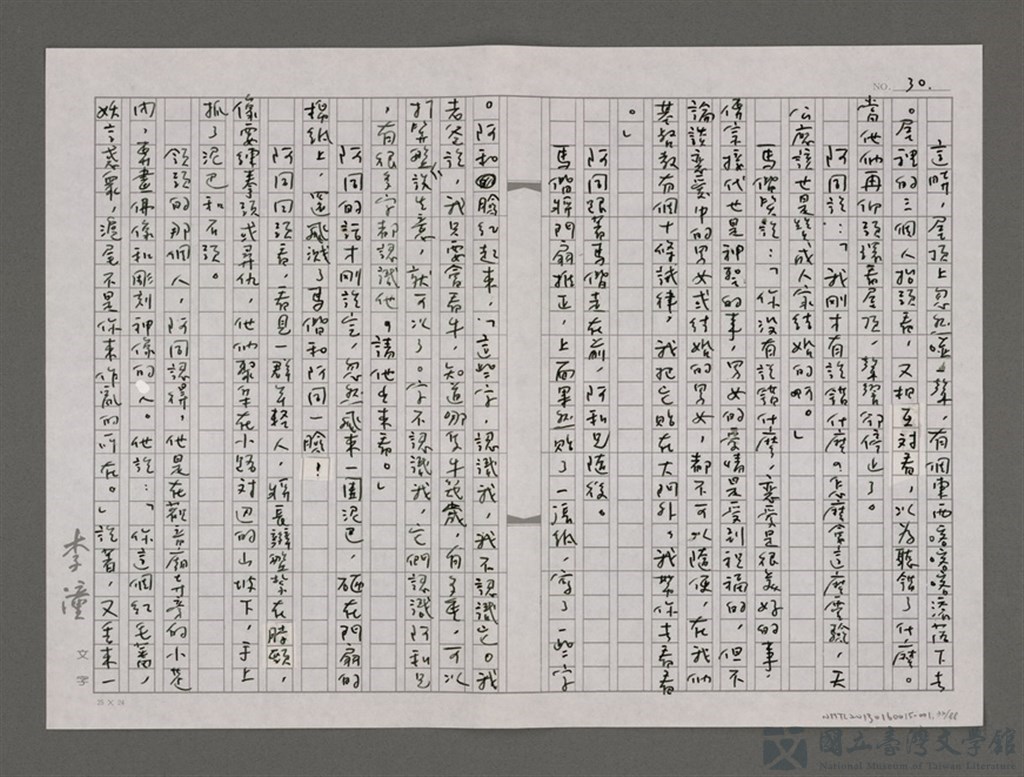 NO. 30.
這時，屋頂上忽然嘘一聲，有個東西嗒嗒嗒滾落下去
。屋裡的三個人抬頭看，又相互對看，以為聽錯了什麼。
當他們再仰頭深看屋頂，聲響卻停止了。
阿同說：「我剛才有說錯什麼？怎麼會這麼靈驗，天
公應該也是贊成人家結婚的啊。」
馬偕笑說：「你沒有說錯什麼，戀愛是很美好的事，
傳宗接代也是神聖的事，男女的愛情是受到祝福的，但不
論談戀愛中的男女或結婚的男女，都不可以隨便，在我們
基督教有個十條誡律，我把它貼在大門外，我帶你去看看
。」
阿同跟著馬偕走在前，阿和兄隨後。
馬偕將門扇推正，上面果然貼了一張紙，寫了一些字
。阿和臉紅起來，「這些字，認識我，我不認識它。我
老爸說，我只要會看牛，知道哪隻牛幾歲，有多重，可以
打算盤談生意，就可以了。字不認識我，它們認識阿和兄
，有很多字都認識他，請他來看。」
阿同的話才剛說完，忽然飛來一團泥巴，砸在門扇的
揭紙上，還飛濺了馬偕和阿同一臉！
阿同回頭看，看見一群年輕人，將長辮盤紮在脖頸，
像要練拳頭或尋仇，他們聚集在小路對邊的山坡下，手上
抓了泥巴和石頭。
領頭的那個人，阿同認得，他是在觀音廟寺旁的小巷
內，專畫佛像和彫刻神像的人。他說：「你這個紅毛番，
妖言惑眾，滬尾不是你來作亂的所在。」說著，又丟來一
李潼
文字
25 × 24
NMTL20130160015-001,
國立臺灣文學館
National Museum of Taiwan Literature